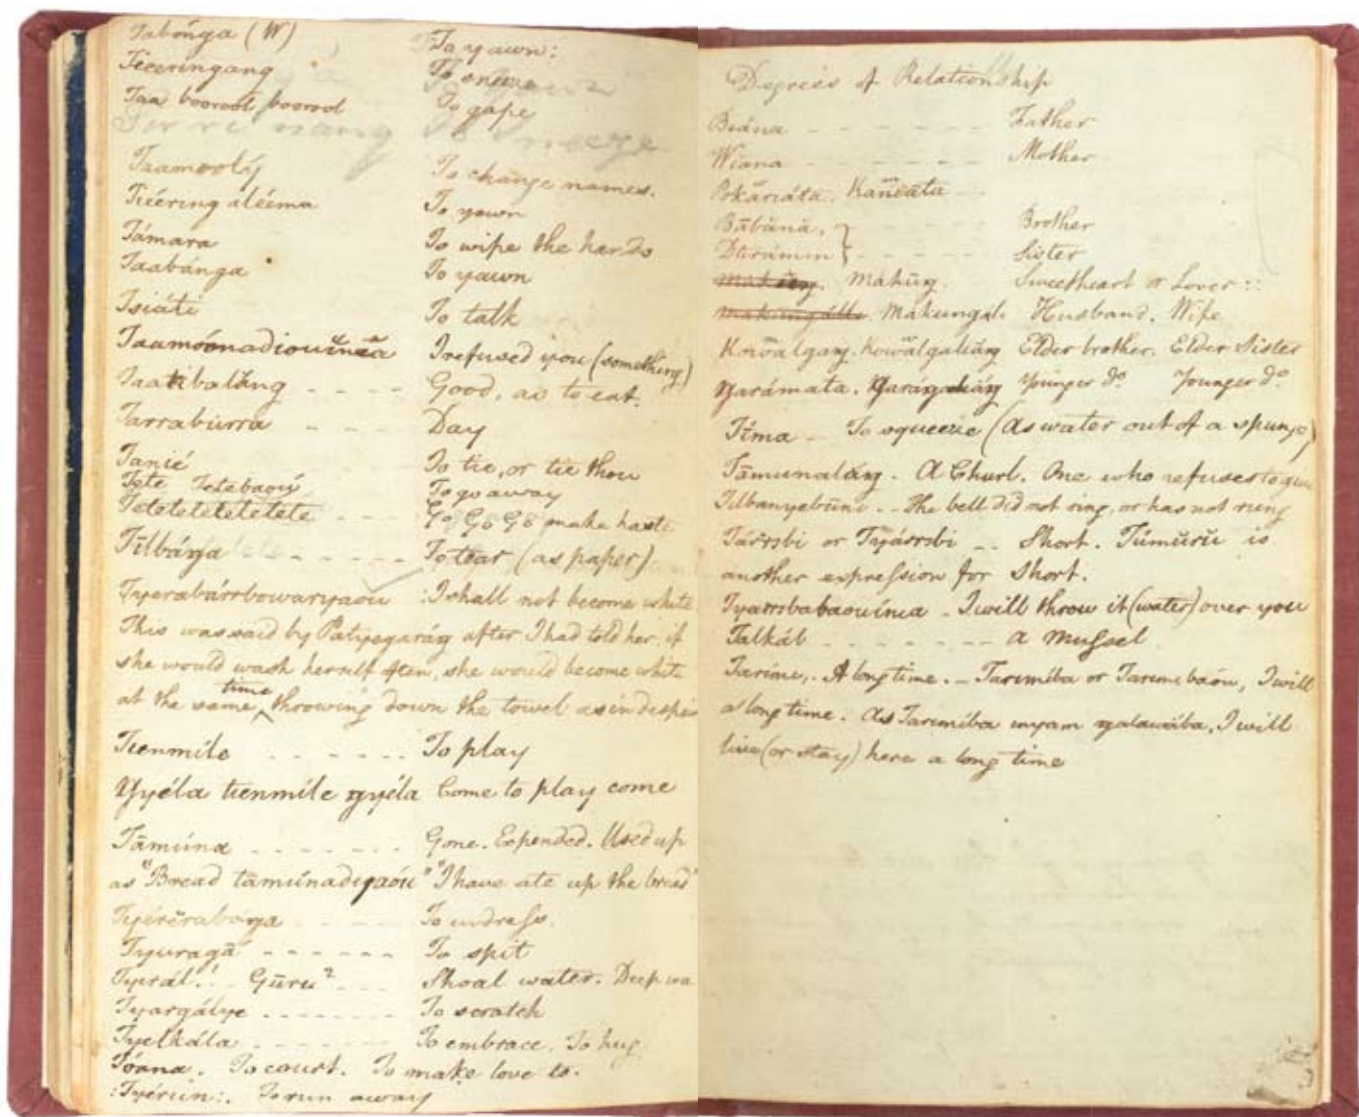 Tabónga (W) To yawn:
Teeeringang To sneeze
Taa boorool boorool To gape
Taamooly To change names.
Tiéering aleéma To yawn
Támara To wipe the hands
Taabánga To yawn
Tsiáti To talk
I refused you (something)
Taatibaláng - - - - Good, as to eat.
Tarraburra - - - Day
Tanié To tie, or tie thou
Tete Tetebaou To go away
Tetetétetétete - - - Go Go Go make haste
Tilbánga - - - - - To tear (as paper)
: I shall not become white
This was said by Patyegaráng after I had told her, if
she would wash herself often, she would become white
at the same time throwing down the towel as in despair
Tienmíle - - - - - - To play
Ngyéla tienmíle ngyéla Come to play come
Tāmúna - - - - - - Gone. Expended. Used up
as "Bread tamúnadyaóu" "I have ate up the bread"
To undress.
Tyuragā - - - - - - To spit
Tyrál! - - Gūru² - - - Shoal water. Deep wa
Tyargálye - - - - - - - To scratch
Tyelkála - - - - - - - To embrace, To hug.
Tóana. To court. To make love to.
:Tyérun:. To run away
Degrees of Relationship
Biána - - - - - - - Father
Wiana - - - - - - - Mother
Bābānā, } - - - - - Brother
Durúmin } - - - - - Sister
Mahūng. Sweetheart or Lover ::
Mākungál. Husband. Wife
Kowālgang. Kowālgaliáng Elder brother. Elder Sister
Ngarámata. Ngarángaliáng Younger do. Younger do.
Tīma - To squeeze (As water out of a spunge)
Tāmunaláng. A Churl. One who refuses to give
Tilbanyebūni - - The bell did not ring, or has not rung
Tárrsbi or Tyárrsbi - - Short. Túmūrū is
another expression for Short.
Tyarrsbabaouínia - I will throw it (water) over you
Talkál - - - - - - - - a Mussel
Tarími,. A long time. - Tarimíba or Tarimibaou, I will
a long time. As Tarimíba inyam ngalawába, I will
live (or stay) here a long time